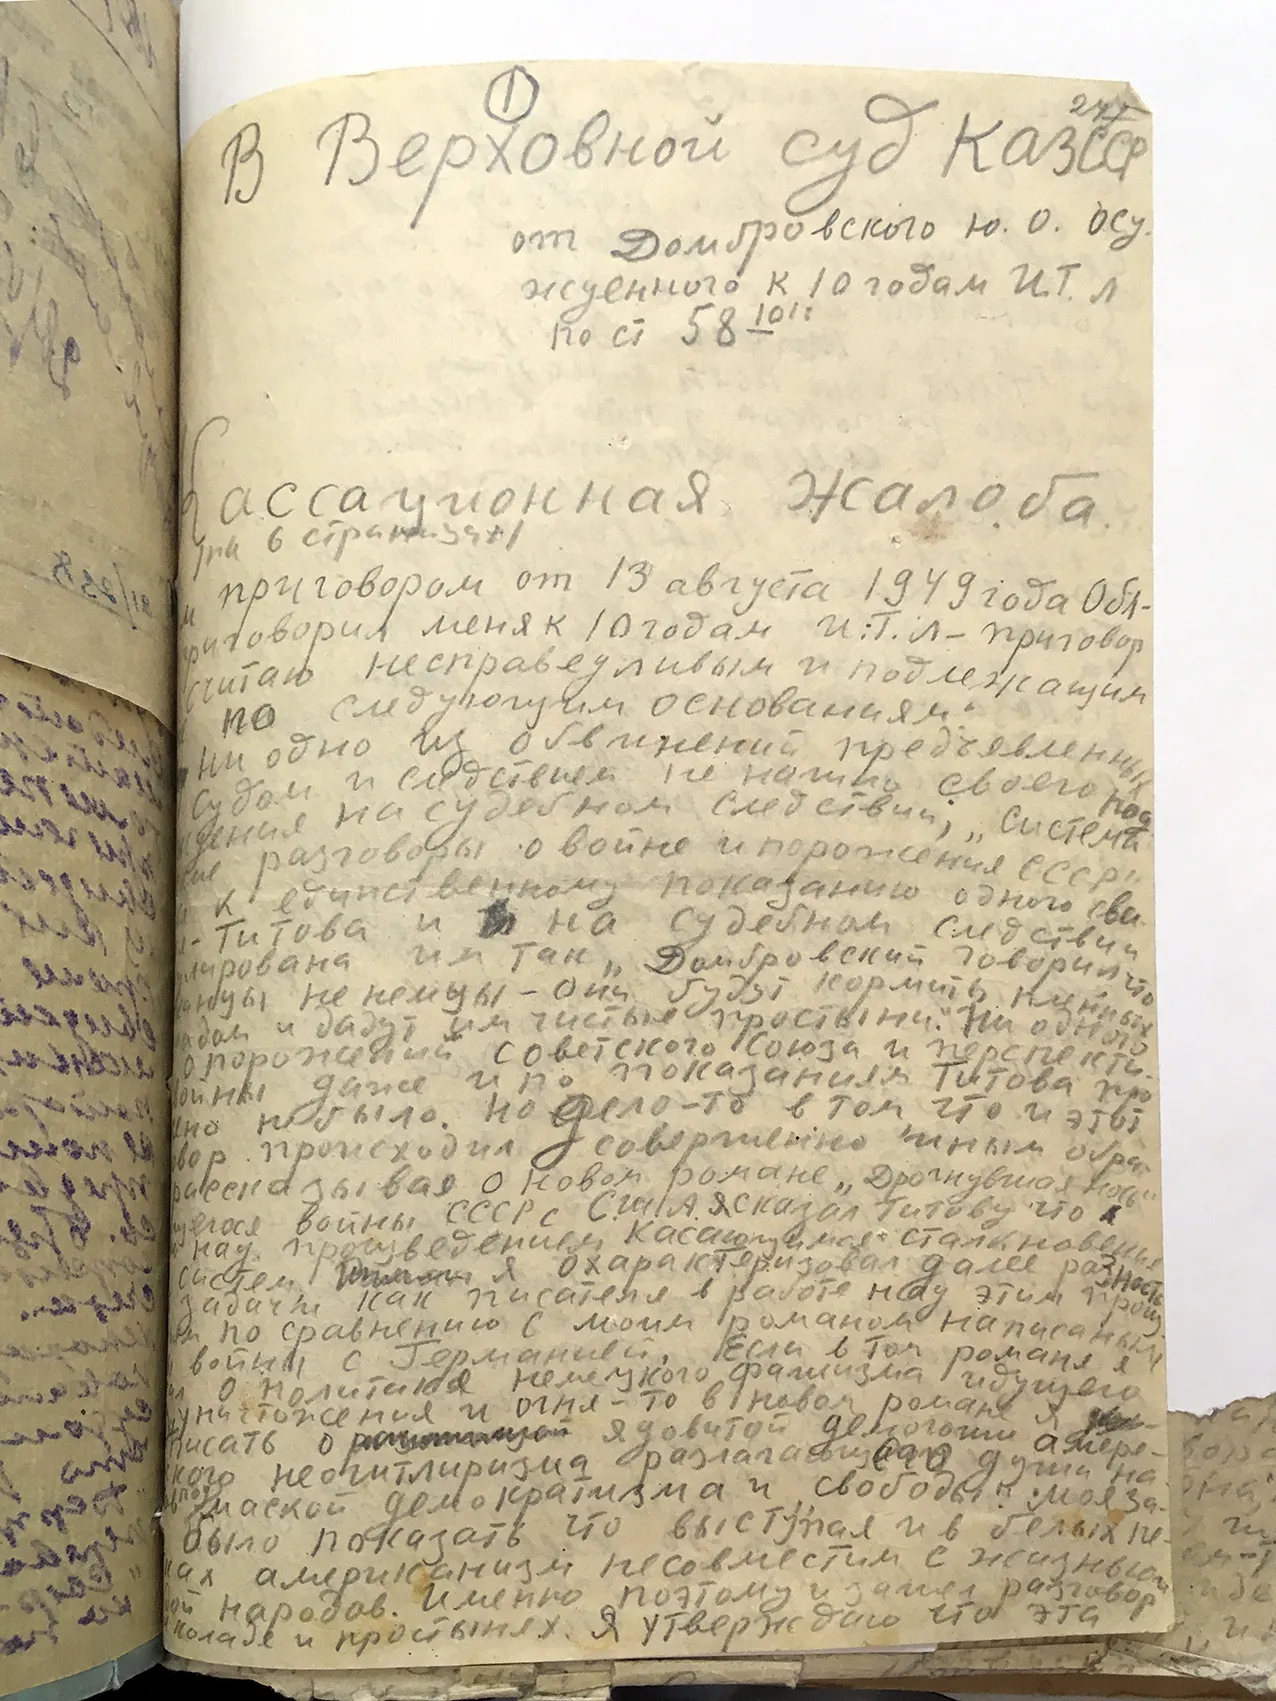 1
247
В Верховной суд КазССР
от Домбровского Ю. О. осу-
жденного к 10 годам И.Т.Л
по ст 58 10
Кассационная Жалоба.
(на 6 страницах)
приговором от 13 августа 1949 года Обл-
приговорил меня к 10 годам И.Т.Л - приговор
считаю несправедливым и подлежащим
по следующим основаниям.
Ни одно из обвинений предъявленных
судом и следствием не нашло своего под
ждения на судебном следствии, „система
ские разговоры о войне и поражения СССР"
к единственному показанию одного сви-
Титова и на судебном следствии
лирована им так „Домбровский говорил что
не немцы - они будут кормить пленных
ладом и дадут им чистые простыни." Ни одного
о поражений Советского Союза и перспекти-
войны даже и по показаниям Титова про
но не было. Но дело-то в том что и этот
вор происходил совершенно иным обра-
рассказывая о новом романе „Дрогнувшая ночь"
щегося войны СССР с США я сказал Титову что
над произведением касающимся столкновения
систем я охарактеризовал далее разность
задачи как писателя в работе над этим произ-
по сравнению с моим романом написаным
войны с Германией. Если в том романе я
о политике немецкого фашизма идущего
уничтожения и огня - то в новом романе я
писать о ядовитой демогогии амери-
ского неогитлиризма разлагающего души на-
под маской демократизма и свободы". Моя за-
было показать что выступая и в белых пе-
ках американизм несовместим с жизнью
ной народов. Именно поэтому и зашел разговор
шоколаде и простынях. Я утверждаю что эта